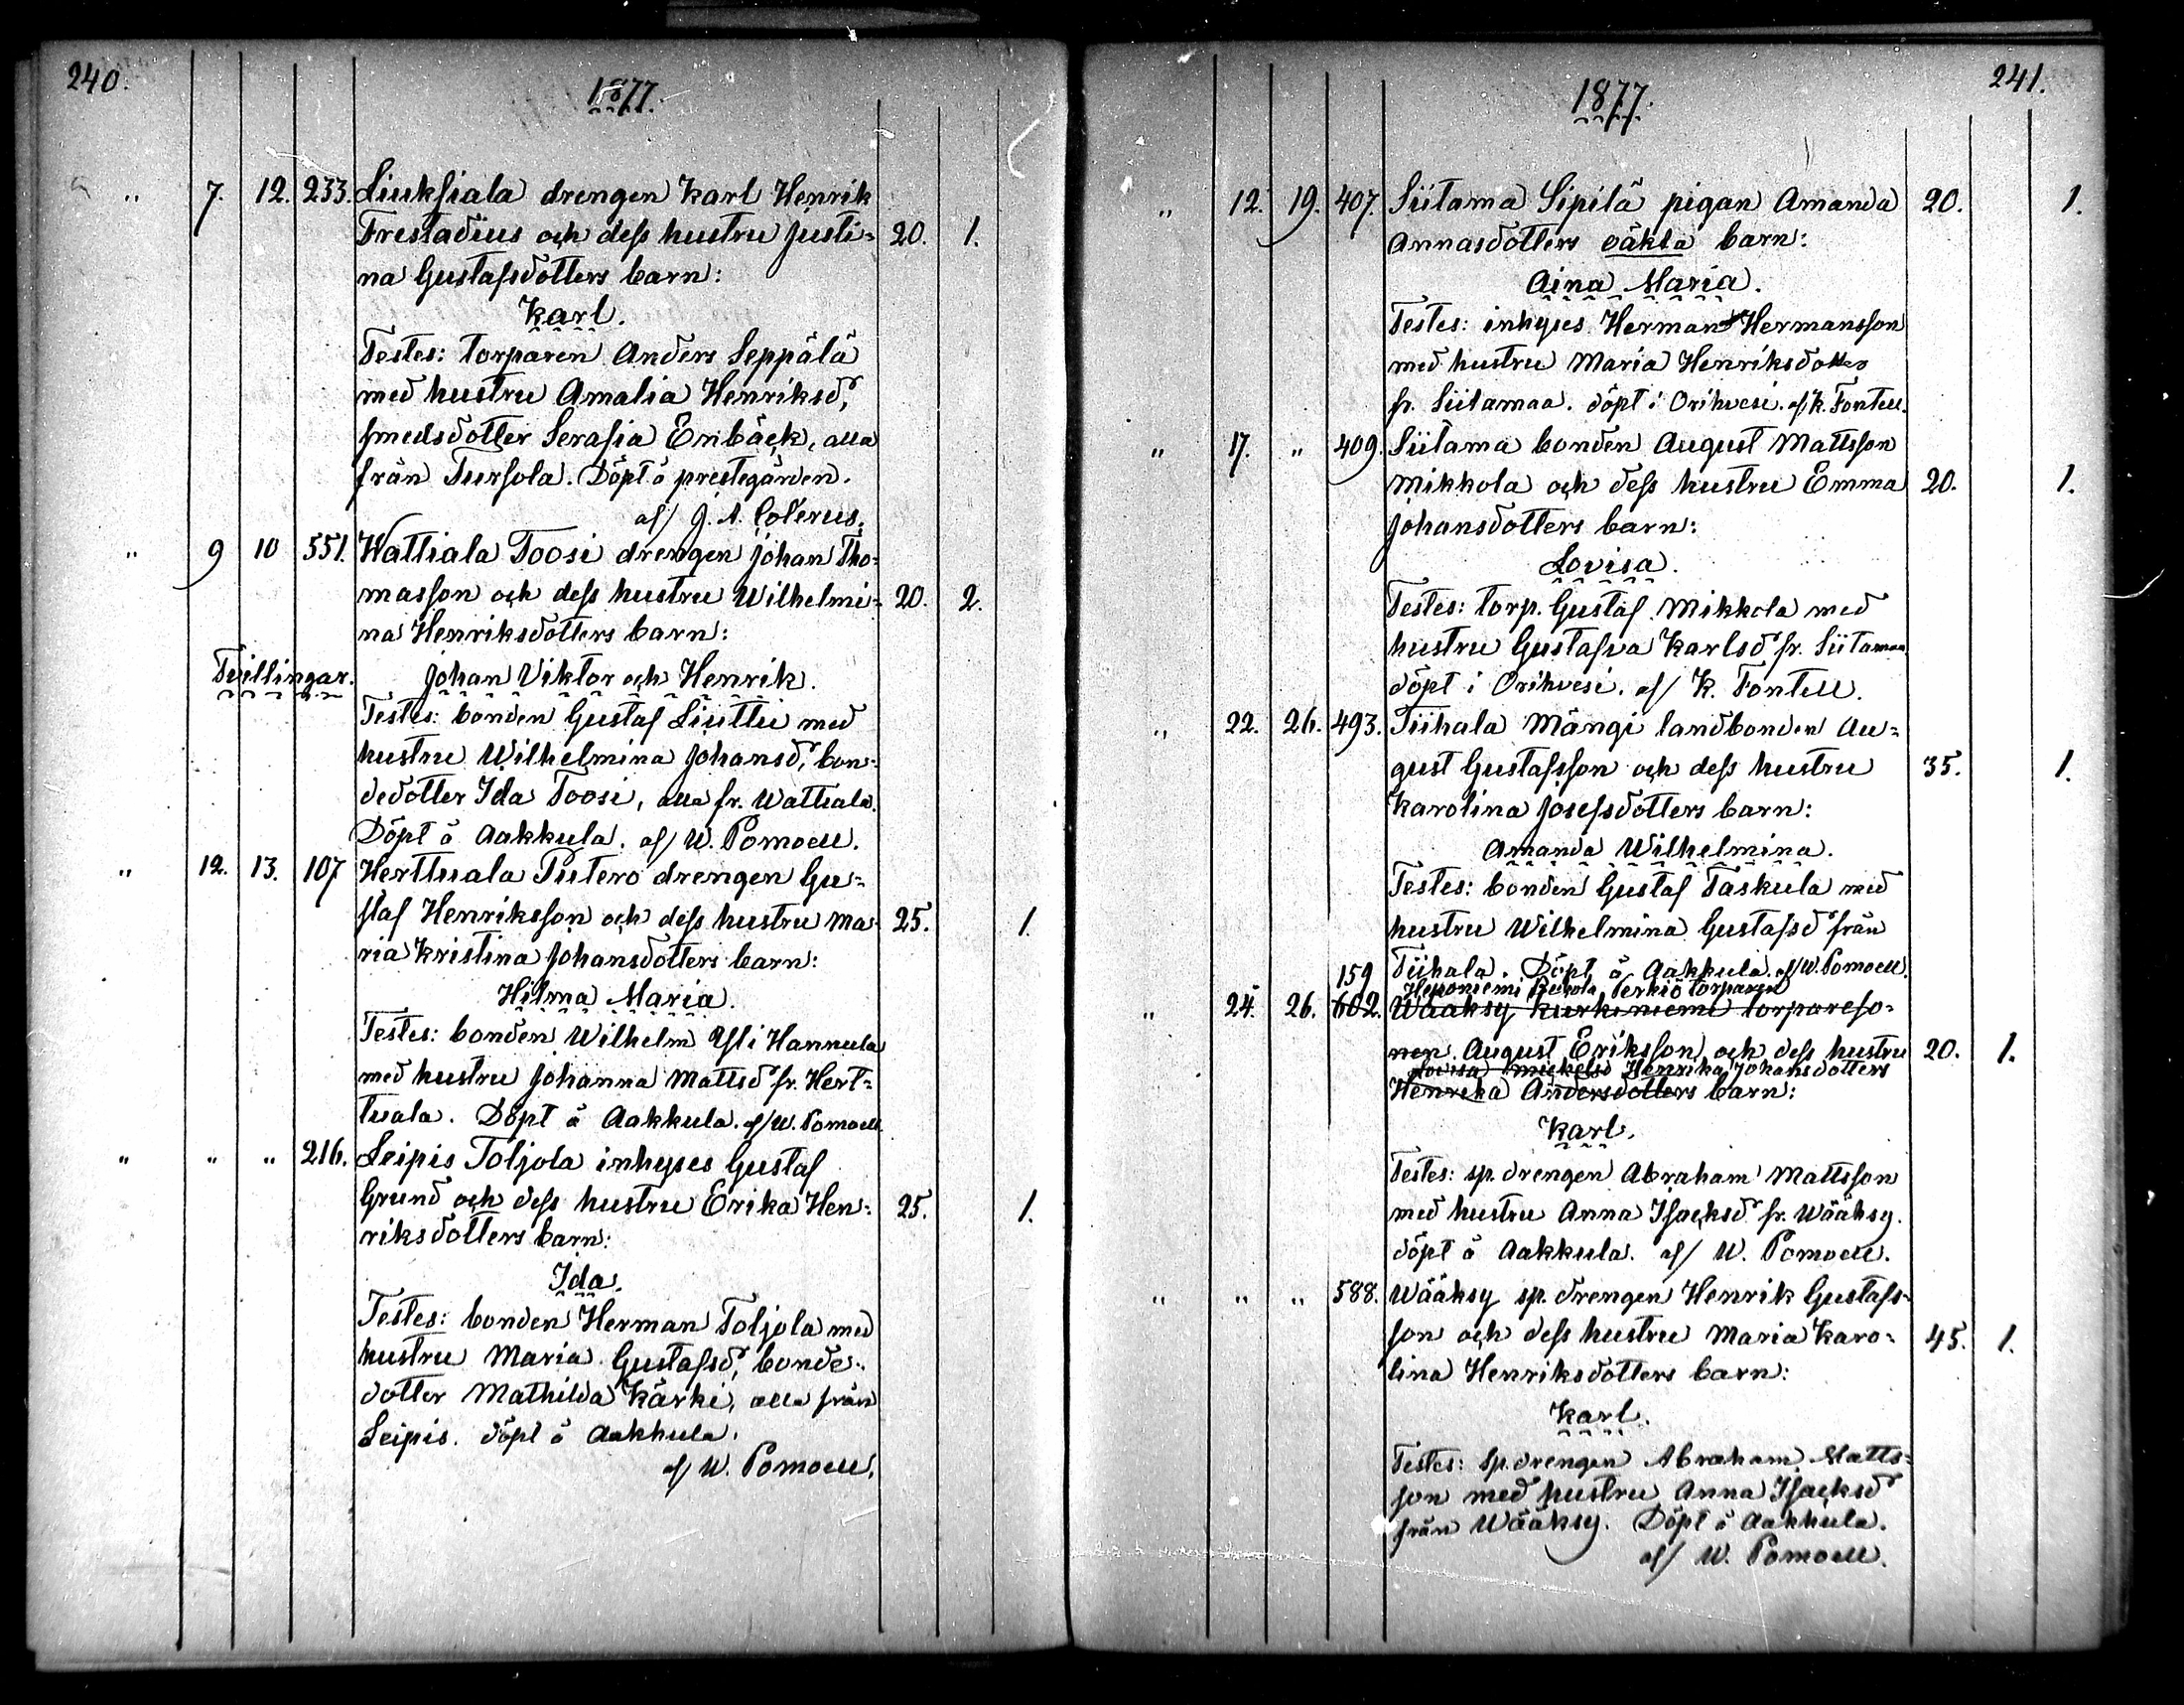 240.
1877.
" 7. 12. 233. Liuksiala drengen Karl Henrik
Frestadius och dess hustru Justi- 20. 1.
na Gustafsdotters barn:
Karl.
Testes: torparen Anders Seppälä
med hustru Amalia Henriksd,
smedsdotter Serafia Enbäck, alla
från Tursola. Döpt å prestegården.
af/ J. A. Colérus.
" 9 10 551. Wattiala Toosi drengen Johan Tho-
masson och dess hustru Wilhelmi- 20. 2.
na Henriksdotters barn:
Tvillingar. Johan Viktor och Henrik.
Testes: bonden Gustaf Liuttu med
hustru Wilhelmina Johansd, bon-
dedotter Ida Toosi, alla fr. Wattiala.
Döpt å Aakkula. af/ W. Pomoell.
" 12. 13. 107 Herttuala Putero drengen Gu-
staf Henriksson och dess hustru Ma- 25. 1.
ria Kristina Johansdotters barn:
Hilma Maria.
Testes: bonden Wilhelm Yli Hannula
med hustru Johanna Mattsd fr. Hert-
tuala. Döpt å Aakkula. af/ W. Pomoell.
" " " 216. Leipis Toljola inhyses Gustaf
Grund och dess hustru Erika Hen- 25. 1.
riksdotters barn:
Ida.
Testes: bonden Herman Toljola med
hustru Maria Gustafsd, bonde-
dotter Mathilda Kärki, alla från
Leipis. döpt å Aakkula.
af/ W. Pomoell.
241.
1877.
" 12. 19. 407. Siitama Sipilä pigan Amanda 20. 1.
Annasdotters oäkta barn:
Aina Maria.
Testes: inhyses Herman Hermansson
med hustru Maria Henriksdotter
fr. Siitamaa. döpt i Orihvesi. af/ K. Fontell.
" 17. " 409. Siitama bonden August Mattsson
Mikkola och dess hustru Emma 20. 1.
Johansdotters barn:
Lovisa.
Testes: torp. Gustaf Mikkola med
hustru Gustafva Karlsd fr. Siitamaa
döpt i Orihvesi. af/ K. Fontell.
" 22. 26. 493. Tiihala Mångi landbonden Au-
gust Gustafsson och dess hustru 35. 1.
Karolina Josefsdotters barn:
Amanda Wilhelmina.
Testes: bonden Gustaf Taskula med
hustru Wilhelmina Gustafsd från
Tiihala. Döpt å Aakkula. af/ W. Pomoell.
159 Heponiemi Perkiö torparen
" 24. 26. 602. Wääksy Kurkiniemi torpareso-
nen August Eriksson och dess hustru 20. 1.
Lovisa Mickelsd Henrika Johansdotters
Henrika Andersdotters barn:
Karl.
Testes: sp. drengen Abraham Mattsson
med hustru Anna Isacksd fr. Wääksy.
döpt å Aakkula. af/ W. Pomoell.
" " " 588. Wääksy sp. drengen Henrik Gustafs-
son och dess hustru Maria Karo- 45. 1.
lina Henriksdotters barn:
Karl.
Testes: sp. drengen Abraham Matts-
son med hustru Anna Isacksd
från Wääksy. Döpt å Aakkula.
af/ W. Pomoell.